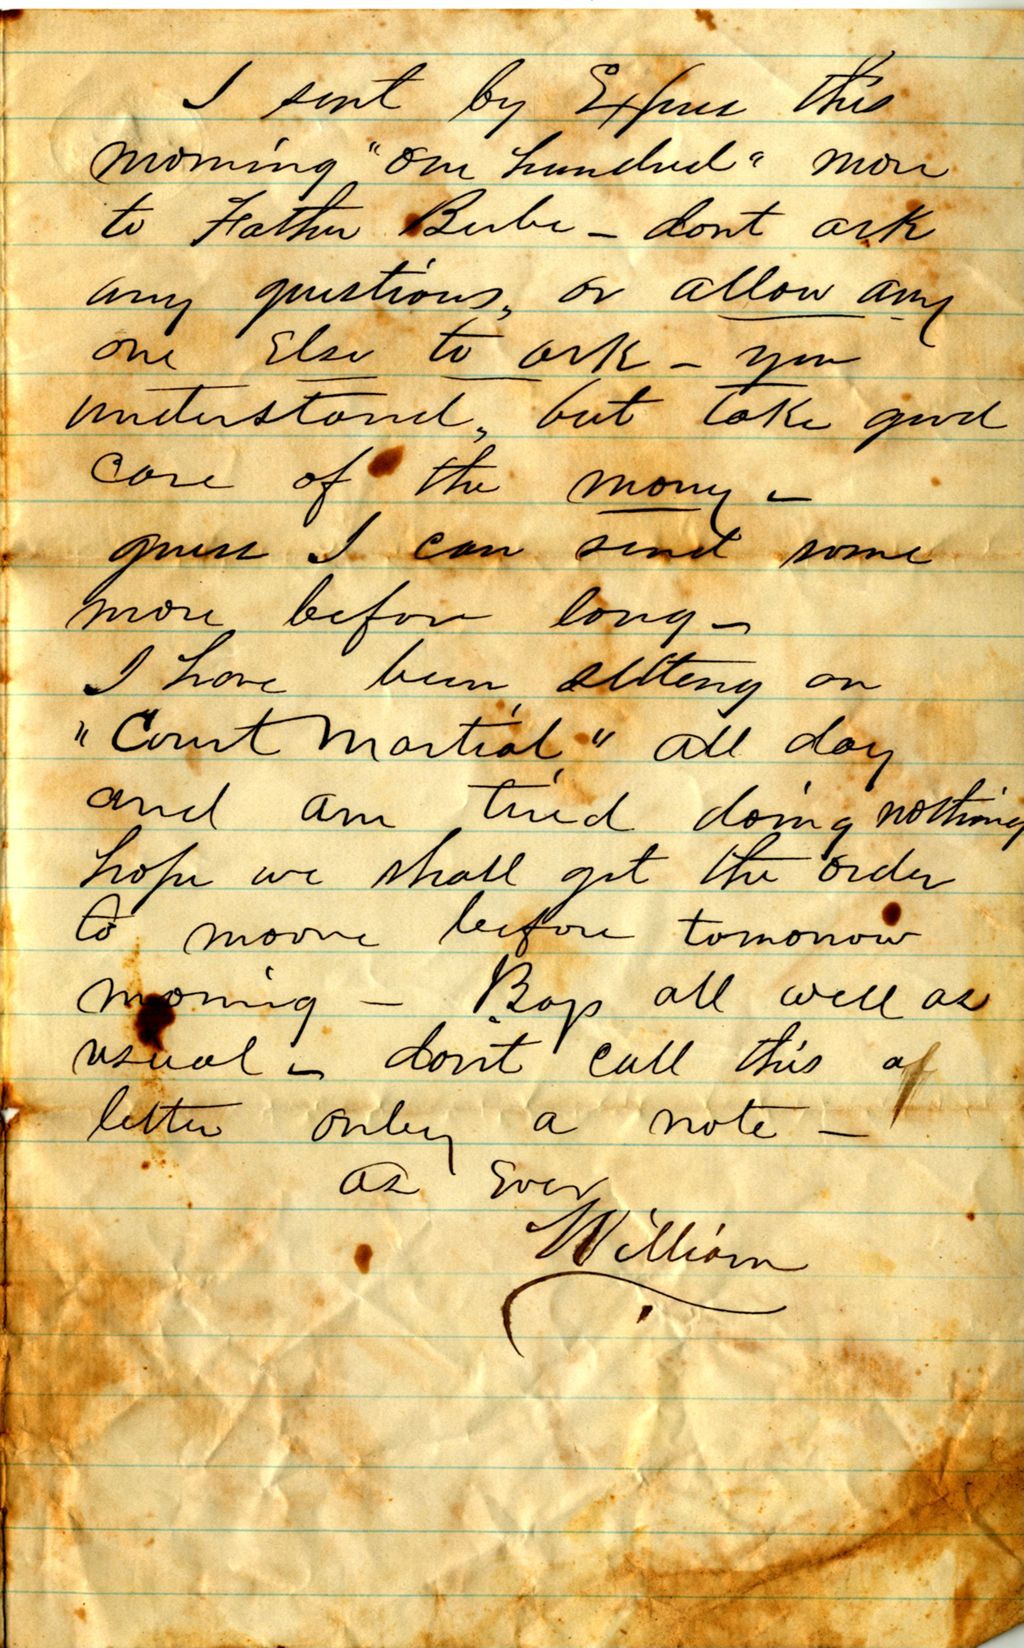 I sent by Express this
morning "one hundred" more
to Father Beebe – dont ask
any questions, or allow any
one Else to ask – you
understand, but take good
care of the mony –
guess I can send some
more before long –
I have been sitteng on
"Court Martial," all day
and am tired doing nothing
hope we shall get the order
to moove before tomorrow
morning – Boys all well as
usual – don't call this a
letter onley a note –
as Ever
William